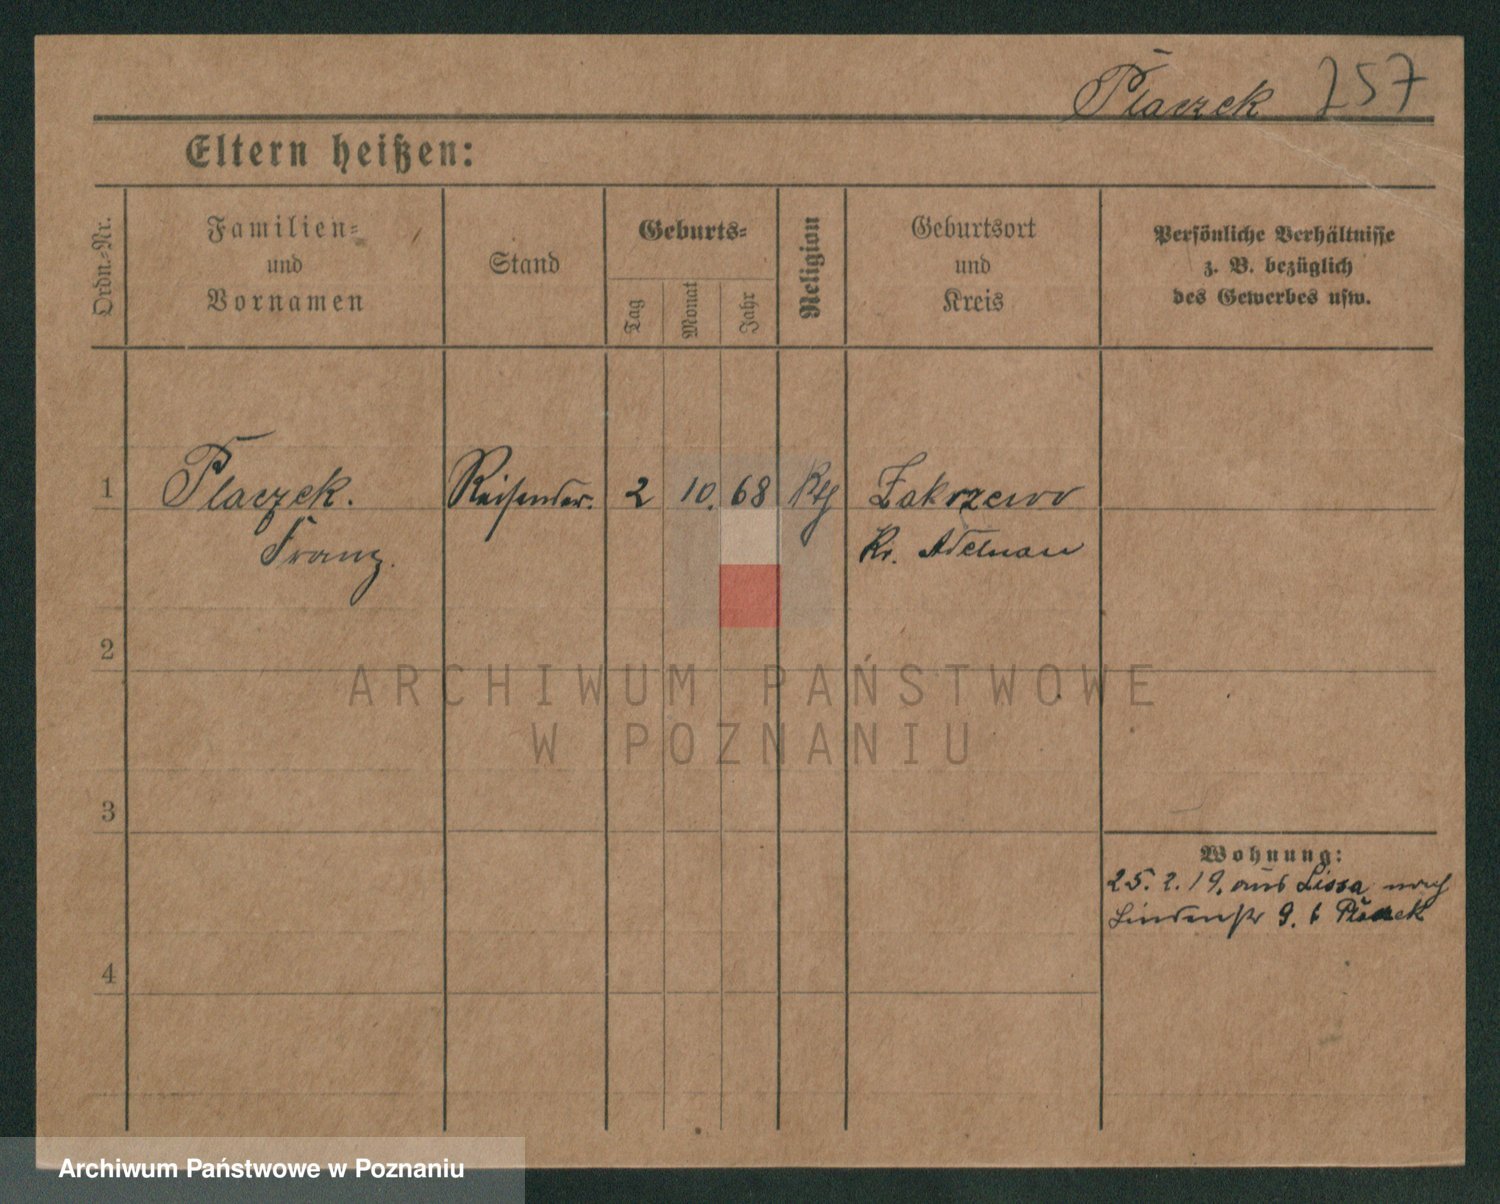 Placzek 257
Eltern heißen:
Ordn.-Nr.
Familien-
und
Vornamen
Stand
Geburts-
Tag
Monat
Jahr
Religion
Geburtsort
und
Kreis
Persönliche Verhältnisse
z. B. bezüglich
des Gewerbes usw.
1 Placzek. Reisender. 2 10. 68 Kth Zakrzewo
Franz. Kr. Adelnau
2
3
4
Wohnung:
25. 2. 19. aus Lissa nach
Lindenstr 9. b Placzek
ARCHIWUM PAŃSTWOWE
W POZNANIU
Archiwum Państwowe w Poznaniu